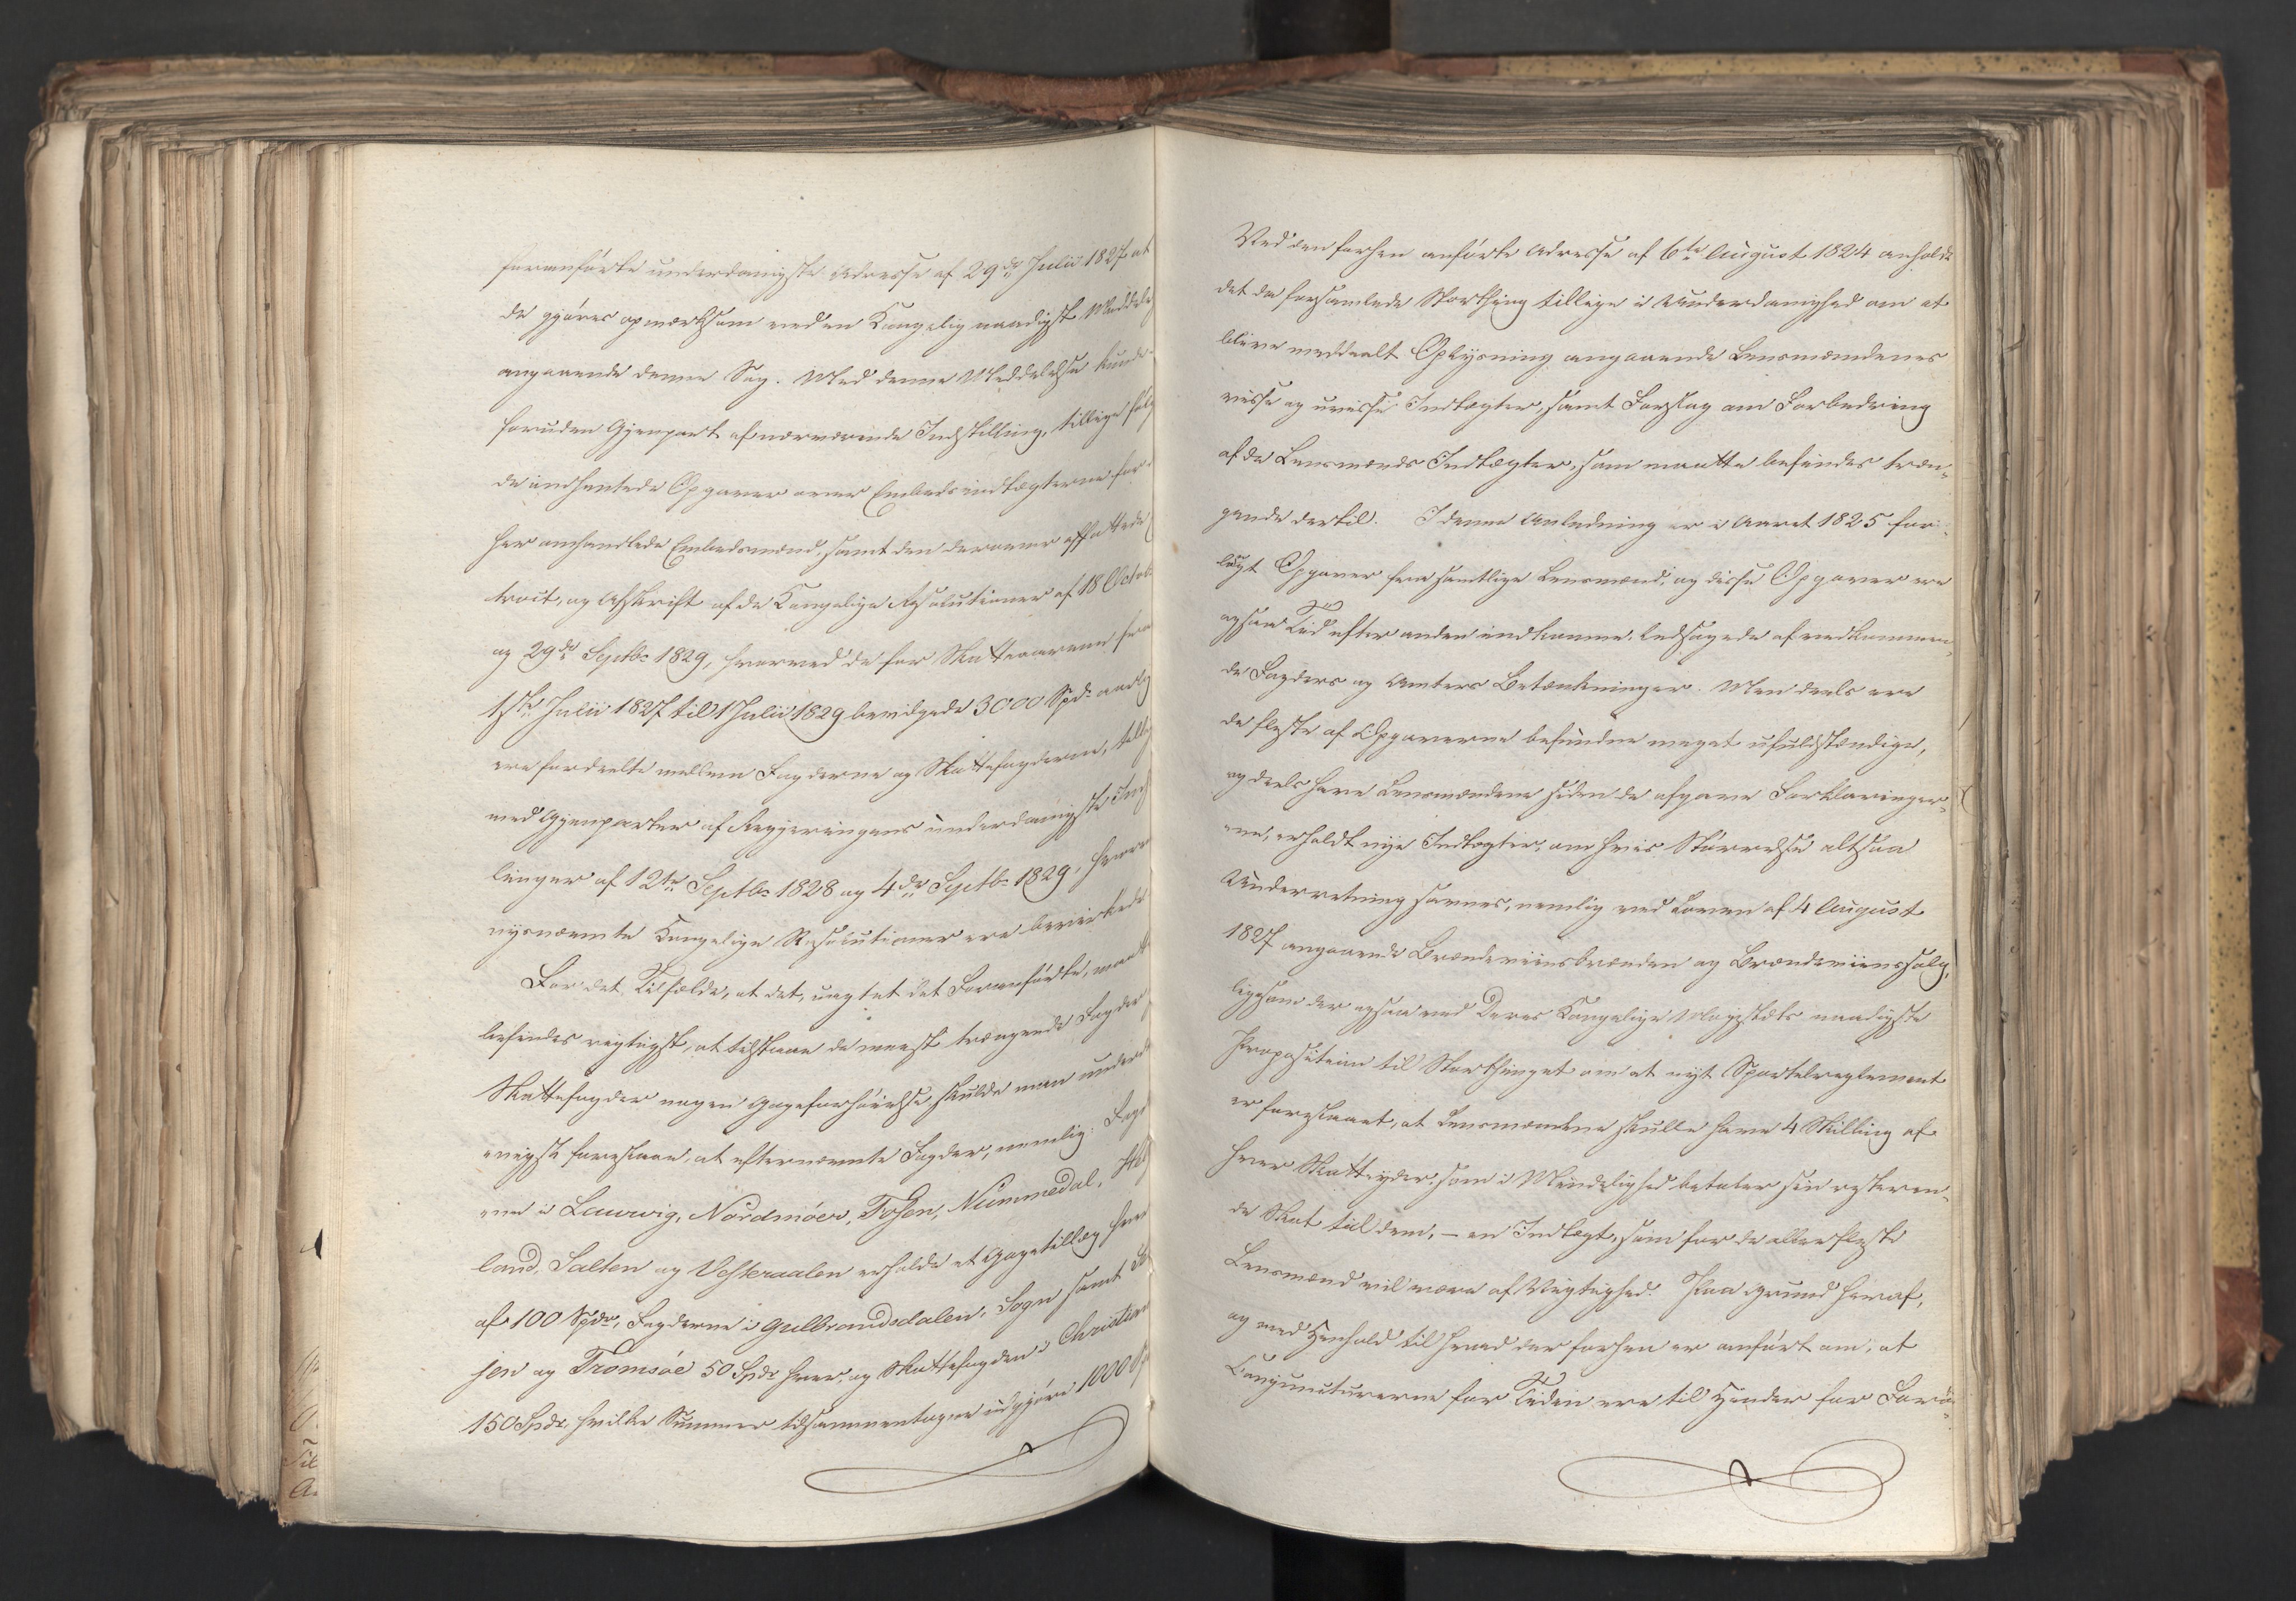 foranførte underdanigste Adresse af 29de Julii 1827 at
de gjøres opmærksom ved en Kongelig naadigst Meddel
angaaende denne Sag. Med denne Meddelelse kunde
foruden Gjenpart af nærværende Indstilling, tillige følg
de indhentede Opgaver over Embedsindtægterne for
her omhandlede Embedsmænd, samt den derover affattede
tract, og Afskrift af de Kongelige Resolutioner af 18 Octob
og 29de Septbr 1829, hvorved de for Skatteaarene fra
1ste Julii 1827 til 1 Julii 1829 bevilgede 3000 Spd. aarlig
ere fordeelte mellem Fogderne og Skattefogderne, tillig
med Gjenparter af Regjeringens underdanigste Inds
linger af 12te Septbr 1828 og 4de Septbr 1829, hvor
nysnævnte Kongelige Resolutioner ere bevirkede
For det Tilfælde, at det, uagtet det Foranførdte, maat
befindes rigtigst, at tilstaae de meest trængende Fogder
Skattefogder nogen Gageforhøielse, skulde man under
anigst foreslaae, at efternævnte Fogder, nemlig: Fogd
erne i Laurvig, Nordmøer, Fosen, Nummedal, Helg
land, Salten og Vesteraalen erholde et Gagetillæg hver
af 100 Spdr, Fogderne i Gulbrandsdalen, Sogn samt Se
jen og Tromsøe 50 Spdr hver, og Skattefogden i Christian
150 Spdr, hvilke Summer tilsammentagne udgjøre 1000 Sp
Ved den forhen anførte Adresse af 6te August 1824 anholdt
det da forsamlede Storthing tillige i Underdanighed om at
blive meddeelt Oplysning angaaende Lensmændenes
visse og uvisse Indtægter, samt Forslag om Forbedring
af de Lensmænds Indtægter, som maatte befindes træn-
gende dertil. I denne Anledning er i Aaret 1825 for-
langt Opgaver fra samtlige Lensmænd, og disse Opgaver ere
ogsaa Tid efter anden indkomne, ledsagede af vedkommen-
de Fogders og Amters Betænkninger. Men deels ere
de fleste af Opgaverne befundne meget ufuldstændige,
og deels have Lensmændene siden de afgave Forklaringer-
ne, erholdt nye Indtægter, om hvis Størrelse altsaa
Underretning savnes, nemlig ved Loven af 4 August
1827 angaaende Brændeviinsbrænden og Brændeviinssalg,
ligesom der ogsaa ved Deres Kongelige Majestæts naadigste
Proposition til Storthinget om et nyt Sportelreglement
er foreslaaet, at Lensmændene skulle have 4 Skilling af
hver Skatteyder, som i Mindelighed betaler sin resteren-
de Skat til dem, – en Indtægt, som for de allerfleste
Lensmænd vil være af Vigtighed. Paa Grund heraf,
og med Henhold til hvad der forhen er anført om, at
Conjuncturerne for Tiden ere til Hinder for Forø-